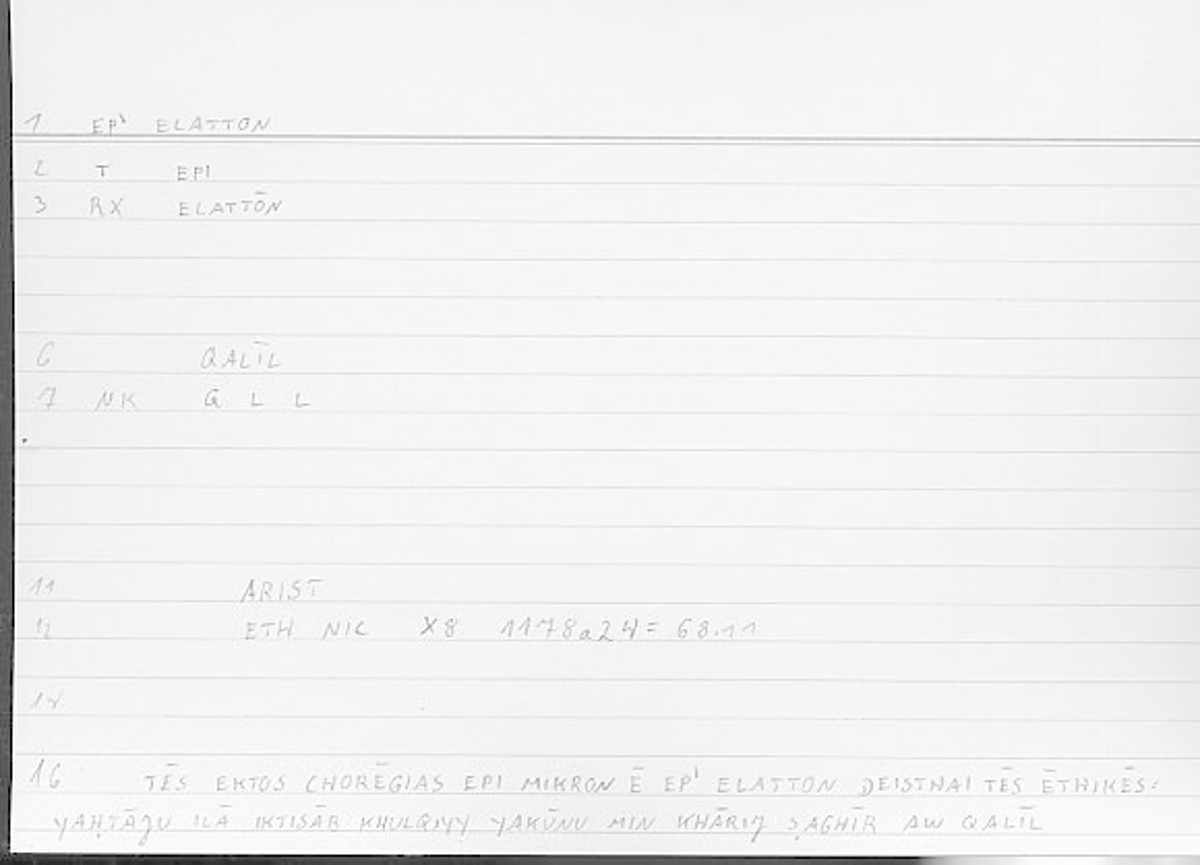 1 EP' ELATTON
2 T EPI
3 RX ELATTŌN
6 QALĪL
7 NK Q L L
11 ARIST
12 ETH NIC X8 1178a24 = 68.11
14
16 TĒS EKTOS CHORĒGIAS EPI MIKRON Ē EP' ELATTON DEISTHAI TĒS ĒTHIKĒS:
YAḤTĀǦU ILĀ IKTISĀB KHULQIYY YAKŪNU MIN KHĀRIǦ ṢAGHĪR AW QALĪL